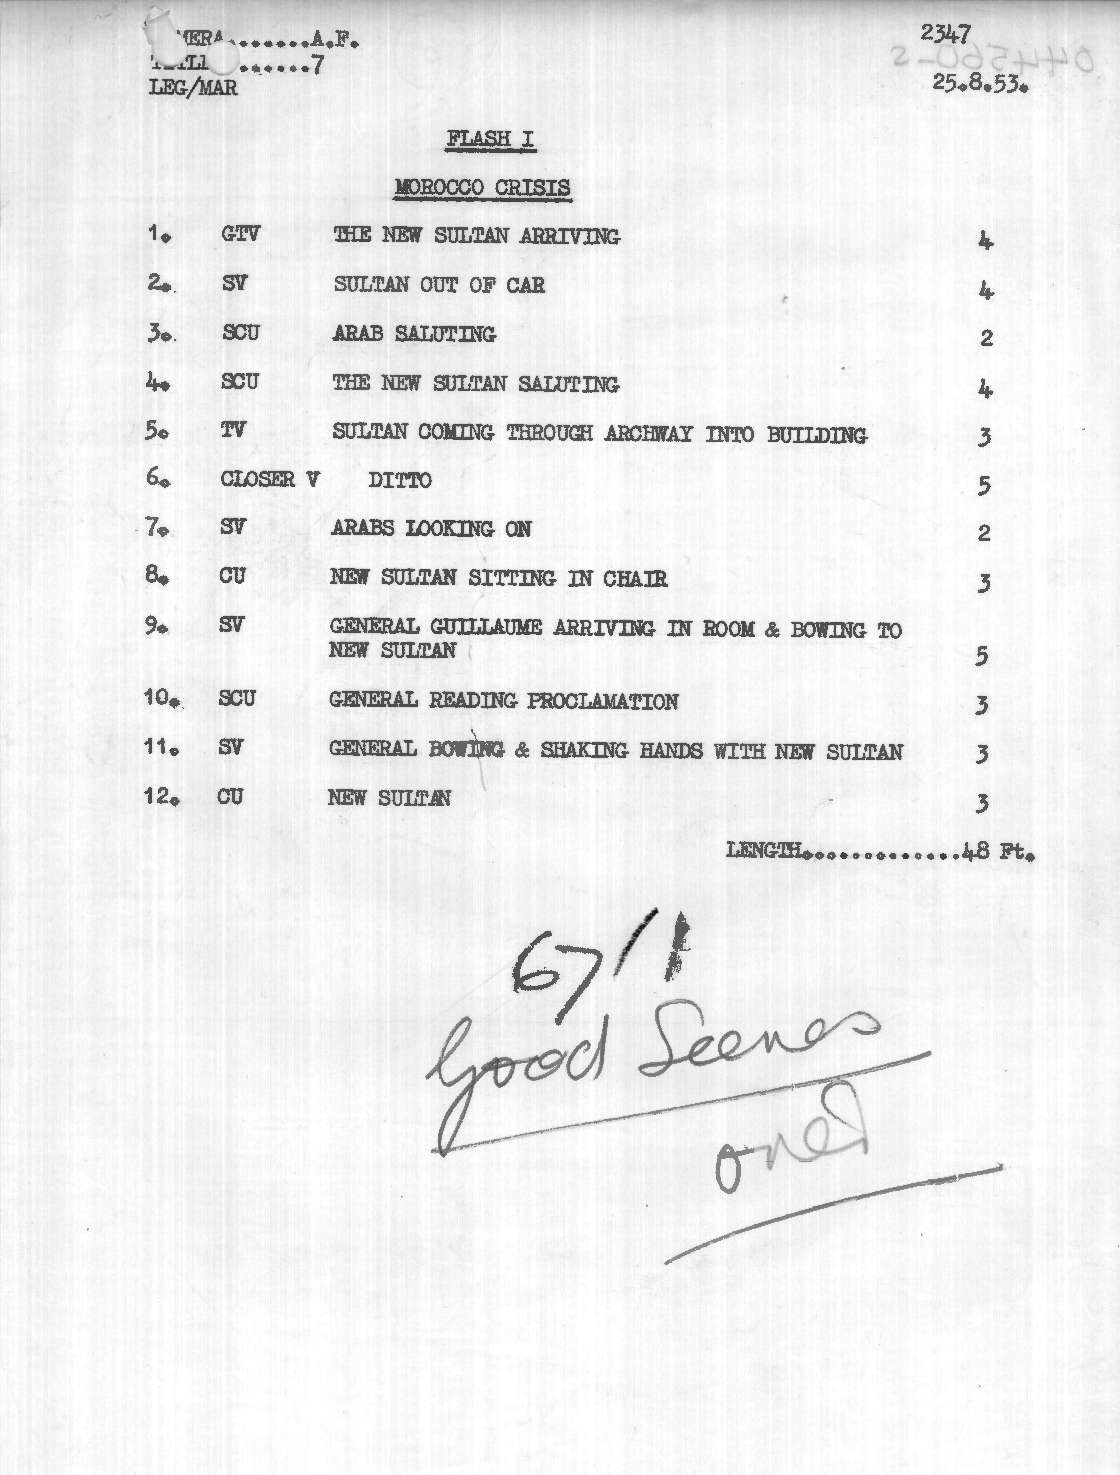 A.F. 2347
.......7
LEG/MAR 25.8.53.
FLASH I
MOROCCO CRISIS
1. GTV THE NEW SULTAN ARRIVING 4
2. SV SULTAN OUT OF CAR 4
3. SCU ARAB SALUTING 2
4. SCU THE NEW SULTAN SALUTING 4
5. TV SULTAN COMING THROUGH ARCHWAY INTO BUILDING 3
6. CLOSER V DITTO 5
7. SV ARABS LOOKING ON 2
8. CU NEW SULTAN SITTING IN CHAIR 3
9. SV GENERAL GUILLAUME ARRIVING IN ROOM & BOWING TO
NEW SULTAN 5
10. SCU GENERAL READING PROCLAMATION 3
11. SV GENERAL BOWING & SHAKING HANDS WITH NEW SULTAN 3
12. CU NEW SULTAN 3
LENGTH.............48 Ft.
67/1
Good Scenes